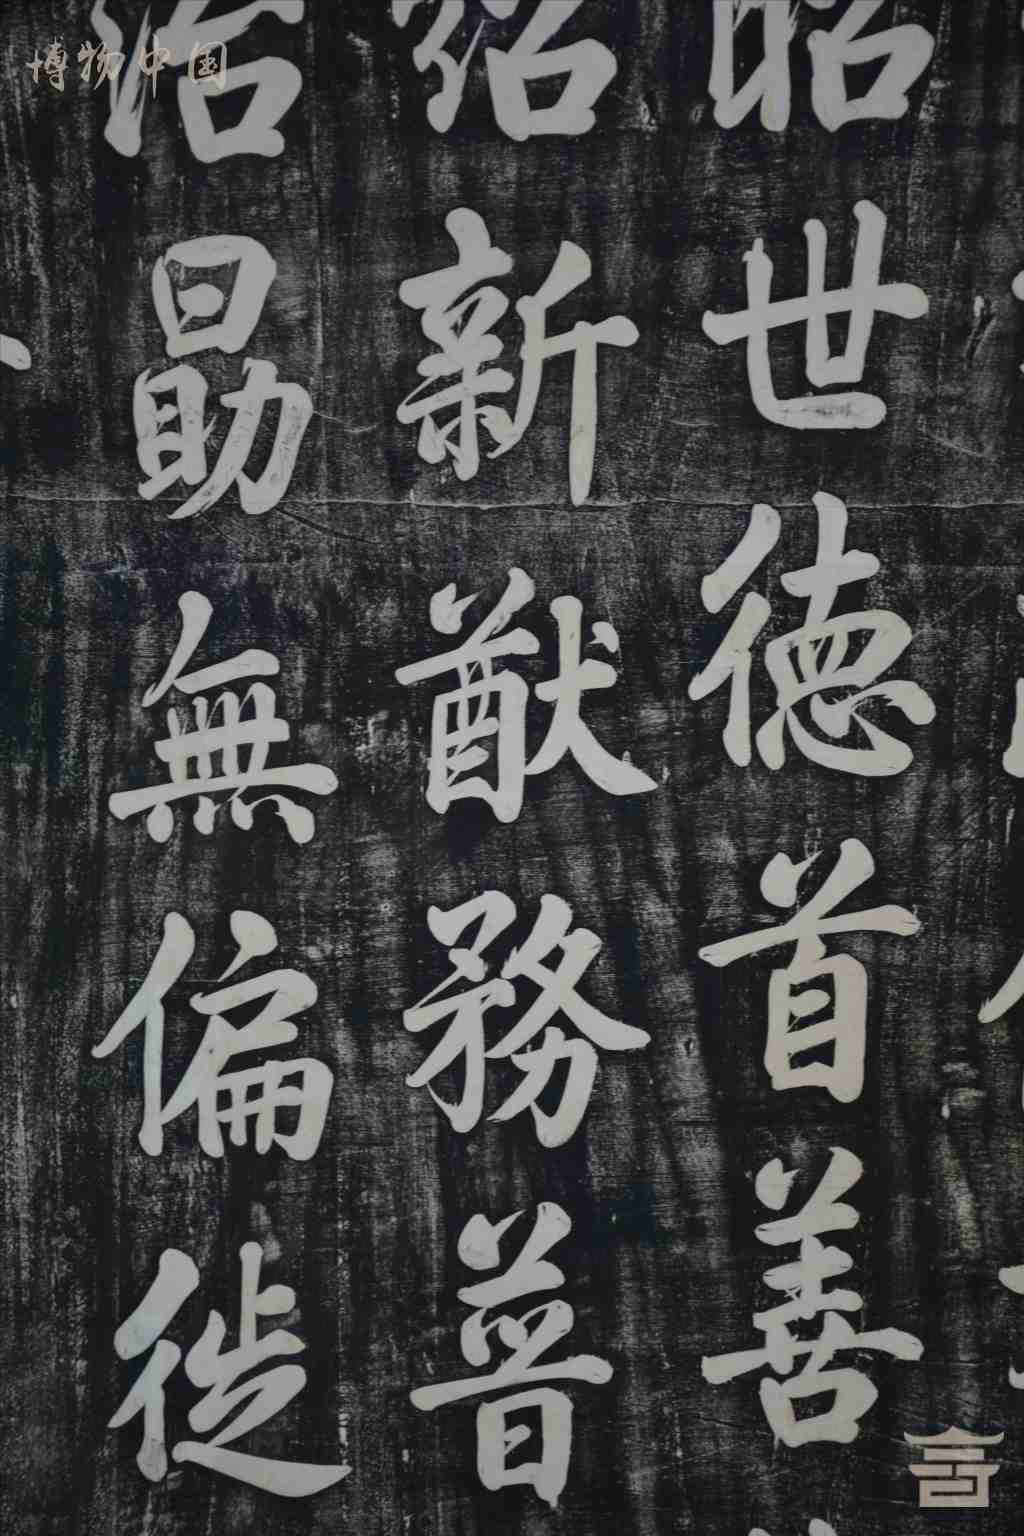 博物中国
昭世德首善
紹新猷務普
治勗無偏徙